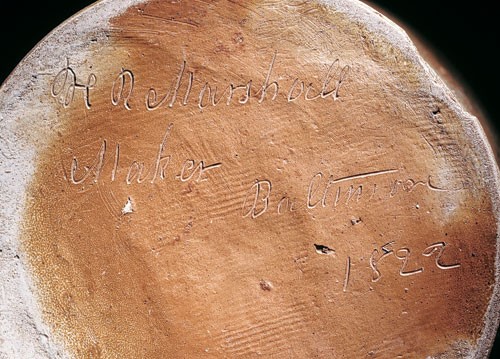 H R Marshall
Maker
Baltimore
1822